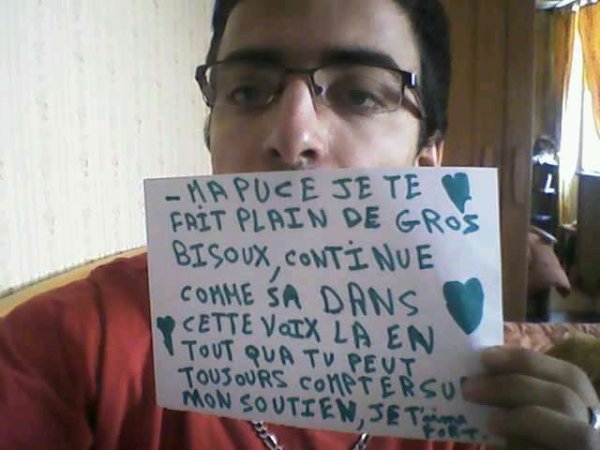 - MA PUCE JE TE
FAIT PLAIN DE GROS
BISOUX, CONTINUE
COMME SA DANS
CETTE VOIX LA EN
TOUT QUA TU PEUT
TOUJOURS COMPTER SU
MON SOUTIEN, JE T'aime
FORT.